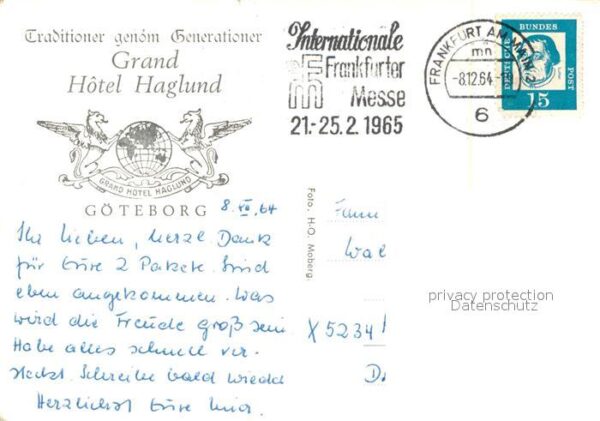 Traditioner genom Generationer
Grand
Hôtel Haglund
GRAND HOTEL HAGLUND
GÖTEBORG
Internationale
Frankfurter
Messe
21.-25.2.1965
FRANKFURT AM MAIN 2
mn
-8.12.64-
6
DEUTSCHE BUNDESPOST
15
8. XII, 64
Ihr lieben, herzl. Dank
für Eure 2 Pakete. Sind
eben angekommen. Was
wird die Freude groß sein
Habe alles schnell ver-
steckt. Schreibe bald wieder
Herzlichst Eure
Foto. H-Q. Moberg.
Fam
Wal
X 5234
D
privacy protection
Datenschutz